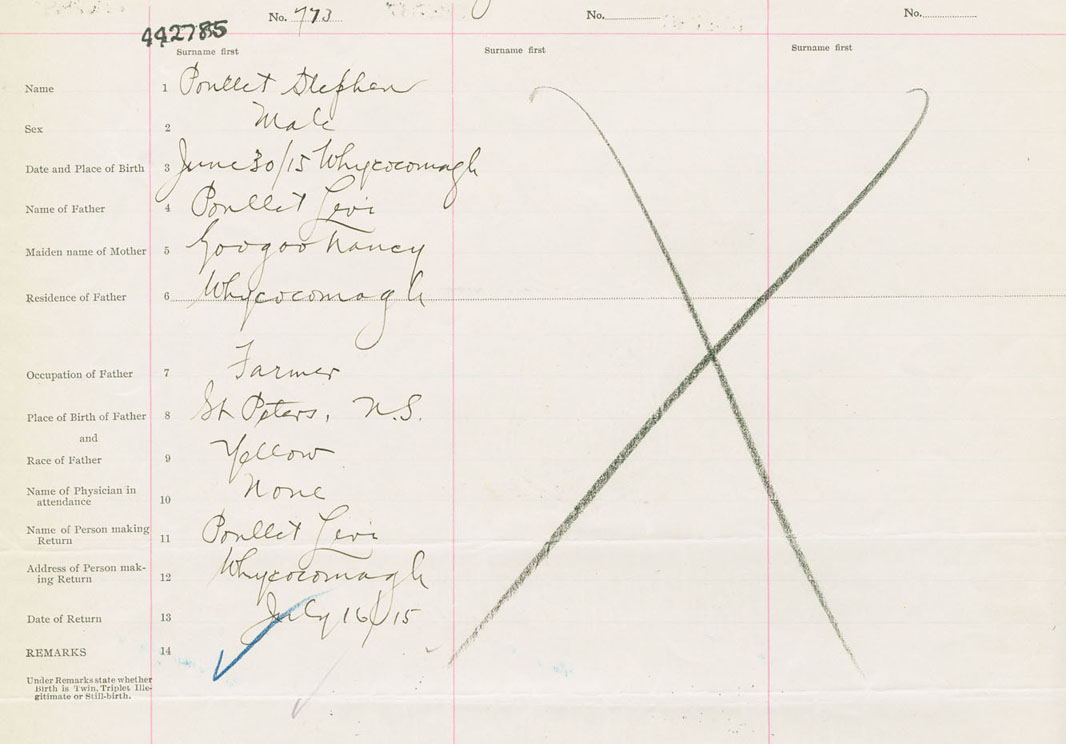 No. 773
No.
No.
442785
Surname first
Surname first
Surname first
Name 1 Poullet Stephen
Sex 2 Male
Date and Place of Birth 3 June 30/15 Whycocomagh
Name of Father 4 Poullet Levi
Maiden name of Mother 5 Googoo Nancy
Residence of Father 6 Whycocomagh
Occupation of Father 7 Farmer
Place of Birth of Father 8 St Peters, N.S.
and
Race of Father 9 Yellow
Name of Physician in
attendance 10 None
Name of Person making
Return 11 Poullet Levi
Address of Person mak-
ing Return 12 Whycocomagh
Date of Return 13 July 16/15
REMARKS 14
Under Remarks state whether
Birth is Twin, Triplet Ille-
gitimate or Still-birth.